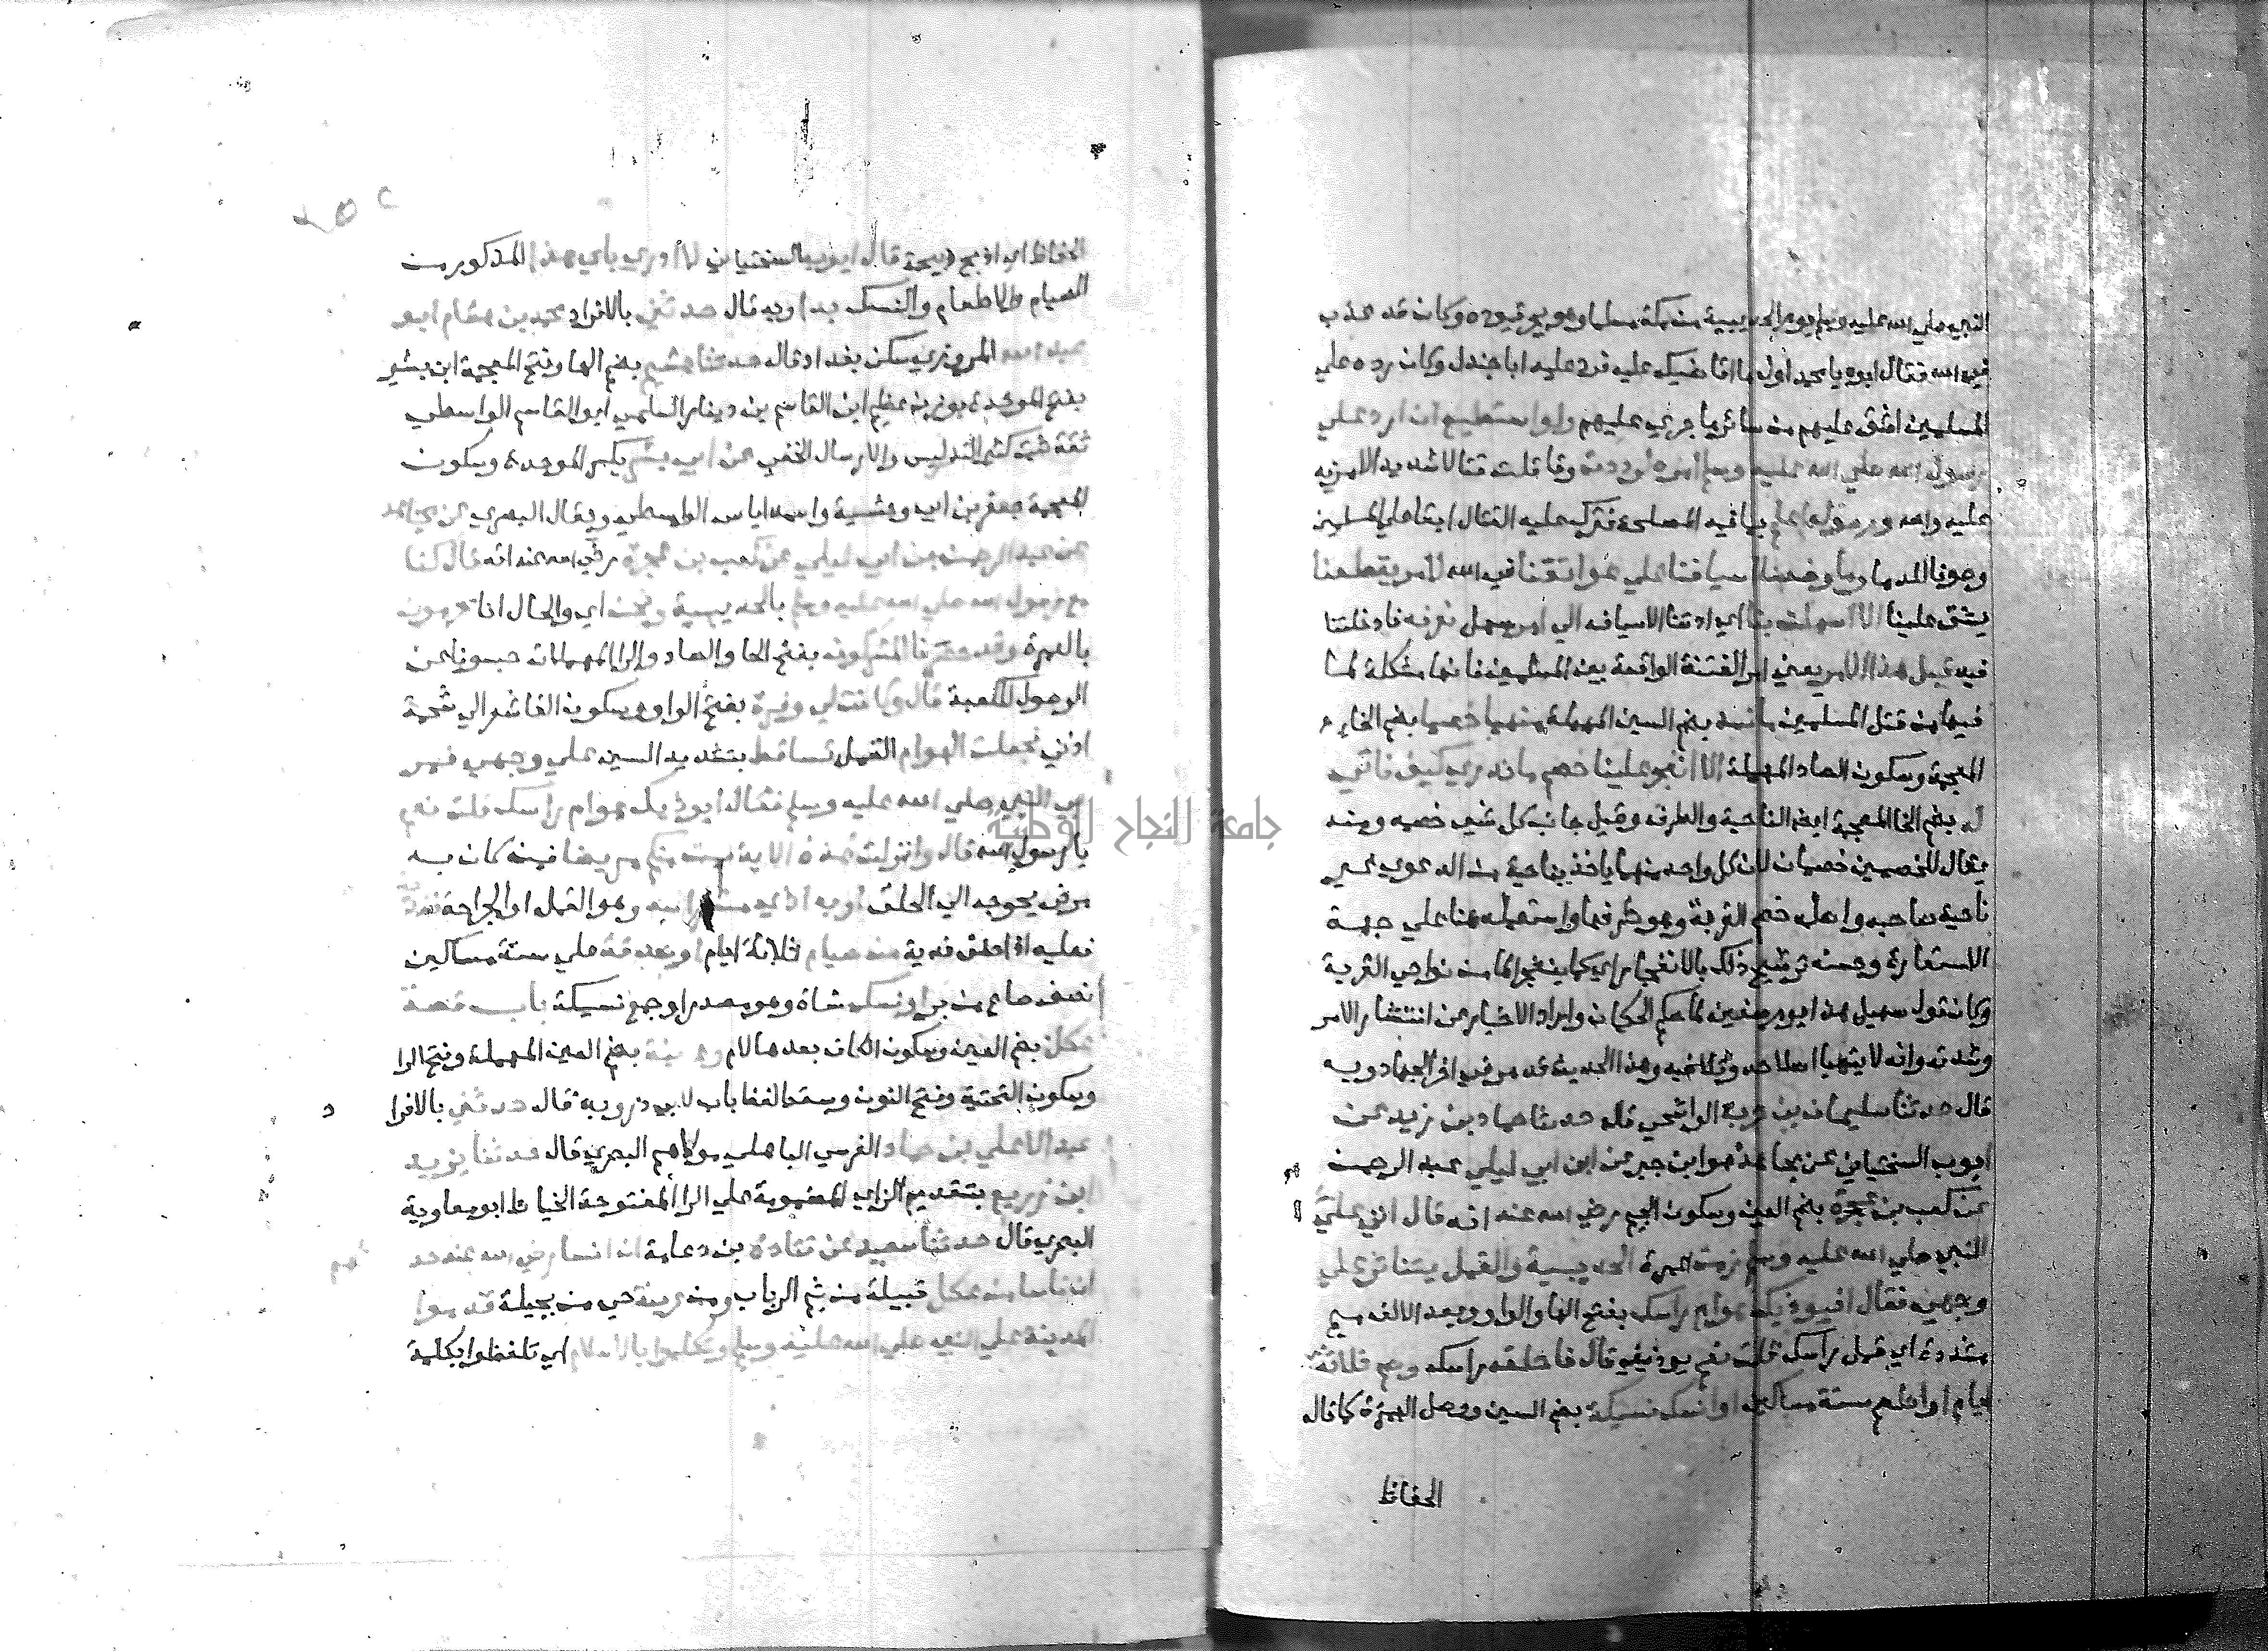 النبي صلي الله عليه وسلم يوم الحديبية من مكة مسلما وهو يجر قيوده وكان قد عذب
في الله فقال ابوه يا محمد اول ما اقاضيك عليه فرد عليه ابا جندل وكان رده علي
المسلمين اشق عليهم من سائر ما جري عليهم ولو استطيع ان ارد علي
رسول الله صلي الله عليه وسلم امره لرددته وقاتلت قتالا شديدا لا مزيد
عليه والله ورسوله اعلم بما فيه المصلحة فترك عليه القتال ابقا علي المسلمين
وصونا للدما وما وضعنا اسيافنا علي عواتقنا في الله لامر يقطعنا
يشق علينا الا اسهلت بنا اي ادتنا الاسياف الي امر سهل نعرفه فادخلتنا
فيه قبل هذا الامر يعني امر الفتنة الواقعة بين المسلمين فانها مشكلة لما
فيها من قتل المسلمين ما نسد بضم السين المهملة منها خصما بضم الخاء
المعجمة وسكون الصاد المهملة الا انفجر علينا خصم ما ندري كيف ناتي
له بضم الخا المعجمة ايضا الناحية والطرف وقيل جانب كل شي خصمه ومنه
يقال للخصمين خصمان لان كل واحد منهما ياخذ بناحية من الدعوي غير
ناحية صاحبه واصله خصم القربة وهو طرفها واستعمله هنا علي جهة
الاستعارة وحسنه ترشيح ذلك بالانفجار اي كما ينفجر الما من نواحي القربة
وكان قول سهيل هذا يوم صفين لما حكم الحكمان واراد الاخبار عن انتشار الامر
وشدته وانه لا يتهيا اصلاحه وتلافيه وهذا الحديث قد مر في اخر الجهاد وبه
قال حدثنا سليمان بن حرب الواشحي قال حدثنا حماد بن زيد عن
ايوب السختياني عن مجاهد هو ابن جبر عن ابن ابي ليلي عبد الرحمن
عن كعب بن عجرة بضم العين وسكون الجيم رضي الله عنه انه قال اتي علي
النبي صلي الله عليه وسلم زمن عمرة الحديبية والقمل يتناثر علي
وجهي فقال ايوذيك هوام راسك بفتح الها والواو وبعد الالف ميم
مشددة اي قمل راسك قلت نعم يوذيني قال فاحلق راسك وصم ثلاثة
ايام او اطعم ستة مساكين او انسك نسيكة بضم السين ووصل الهمزة كما قاله
الحفاظ
الحفاظ اي اذبح ذبيحة قال ايوب السختياني لا ادري باي هذا المذكور من
الصيام والاطعام والنسك بدا وبه قال حدثني بالافراد محمد بن هشام ابو
عبد الله المروزي سكن بغداد قال حدثنا هشيم بضم الها وفتح المعجمة ابن بشير
بفتح الموحدة بوزن عظيم ابن القاسم بن دينار السلمي ابو القاسم الواسطي
ثقة ثبت كثير التدليس والارسال الخفي عن ابي بشر بكسر الموحدة وسكون
المعجمة جعفر بن ابي وحشية واسمه اياس الواسطي ويقال البصري عن مجاهد
عن عبد الرحمن بن ابي ليلي عن كعب بن عجرة رضي الله عنه انه قال كنا
مع رسول الله صلي الله عليه وسلم بالحديبية ونحن اي والحال انا محرمون
بالعمرة وقد حصرنا المشركون بفتح الحا والصاد والرا المهملات حبسونا عن
الوصول للكعبة قال وكانت لي وفرة بفتح الواو وسكون الفا شعر الي شحمة
اذني فجعلت الهوام القمل تساقط بتشديد السين علي وجهي فمر
بي النبي صلي الله عليه وسلم فقال ايوذيك هوام راسك قلت نعم
يا رسول الله قال وانزلت هذه الاية فمن كان منكم مريضا فمن كان به
مرض يحوجه الي الحلق او به اذي من راسه وهو القمل او الجراحة
فعليه اذا حلق فدية من صيام ثلاثة ايام او صدقة علي ستة مساكين
نصف صاع من بر او نسك شاة وهو مصدر او جمع نسيكة باب قصة
عكل بضم العين وسكون الكاف بعدها لام وعرينة بضم العين المهملة وفتح الرا
وسكون التحتية وفتح النون وسقط لفظ باب لابي ذر وبه قال حدثني بالافرا
د
عبد الاعلي بن حماد النرسي الباهلي مولاهم البصري قال حدثنا يزيد
ابن زريع بتقديم الزاي المضمومة علي الرا المفتوحة الخياط ابو معاوية
البصري قال حدثنا سعيد عن قتادة بن دعامة ان انسا رضي الله عنه حد
ثهم
ان ناسا من عكل قبيلة من تيم الرباب ومن عرينة حي من بجيلة قدموا
المدينة علي النبي صلي الله عليه وسلم وتكلموا بالاسلام اي تلفظوا بكلمة
جامعة النجاح الوطنية